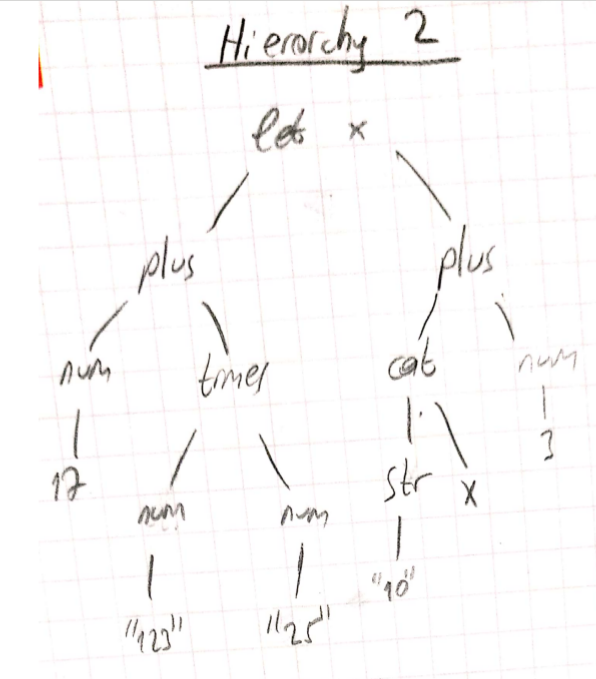 Hierarchy 2
let x
plus plus
num times cat num
17 num num str x 3
"123" "25" "10"